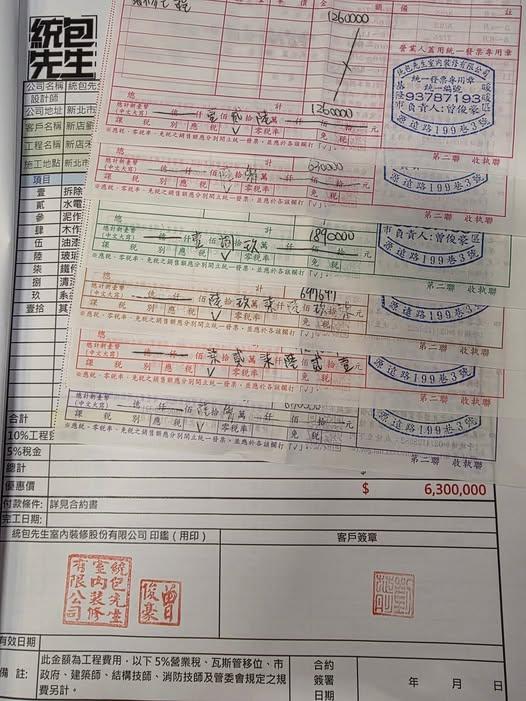 1260000
營業人蓋用統一發票專用章
統包先生室內裝修有限公司
統一發票專用章
統一編號
93787193
負責人:曾俊豪
源遠路199巷3號
總計
1260000
總計新臺幣
(中文大寫)
億 仟 壹 佰 貳 拾 陸 萬 仟 佰 拾 元
課稅別 應稅 V 零稅率 免稅
※應稅、零稅率、免稅之銷售額應分別開立統一發票,並應於各該欄打「V」。
第二聯 收執聯
630000
課稅別 應稅 V 零稅率 免稅
源遠路199巷3號
※應稅、零稅率、免稅之銷售額應分別開立統一發票,並應於各該欄打「V」。
第二聯 收執聯
總計
1890000
總計新臺幣
(中文大寫)
市負責人:曾俊豪區
源遠路199巷3號
課稅別 應稅 V 零稅率 免稅
※應稅、零稅率、免稅之銷售額應分別開立統一發票,並應於各該欄打「V」。
第二聯 收執聯
總計新臺幣
(中文大寫)
697697
課稅別 應稅 V 零稅率 免稅
源遠路199巷3號
※應稅、零稅率、免稅之銷售額應分別開立統一發票,並應於各該欄打「V」。
第二聯 收執聯
總計新臺幣
(中文大寫)
億 仟 佰 柒 拾 貳 萬 柒 仟 陸 佰 貳 拾 壹 元
課稅別 應稅 V 零稅率 免稅
源遠路199巷3號
※應稅、零稅率、免稅之銷售額應分別開立統一發票,並應於各該欄打「V」。
第二聯 收執聯
總計新臺幣
(中文大寫)
課稅別 應稅 V 零稅率 免稅
源遠路199巷3號
※應稅、零稅率、免稅之銷售額應分別開立統一發票,並應於各該欄打「V」。
第二聯 收執聯
統包
先生
公司名稱 統包先
設計師
公司地址 新北市
客戶名稱 新店
工程名稱 新店
施工地點 新北市
項目
壹 拆除
貳 水電
參 泥作
肆 木作
伍 油漆
陸 玻璃
柒 鐵件
捌 清
玖 系
壹拾 其
合計
10%工程
5%稅金
總計
優惠價 $ 6,300,000
付款條件: 詳見合約書
完工日期:
統包先生室內裝修股份有限公司 印鑑(用印) 客戶簽章
統包先生
室內裝修
有限公司
曾俊豪
有效日期
備註: 此金額為工程費用,以下5%營業稅、瓦斯管移位、市
政府、建築師、結構技師、消防技師及管委會規定之規
費另計。
合約
簽署
日期
年 月 日